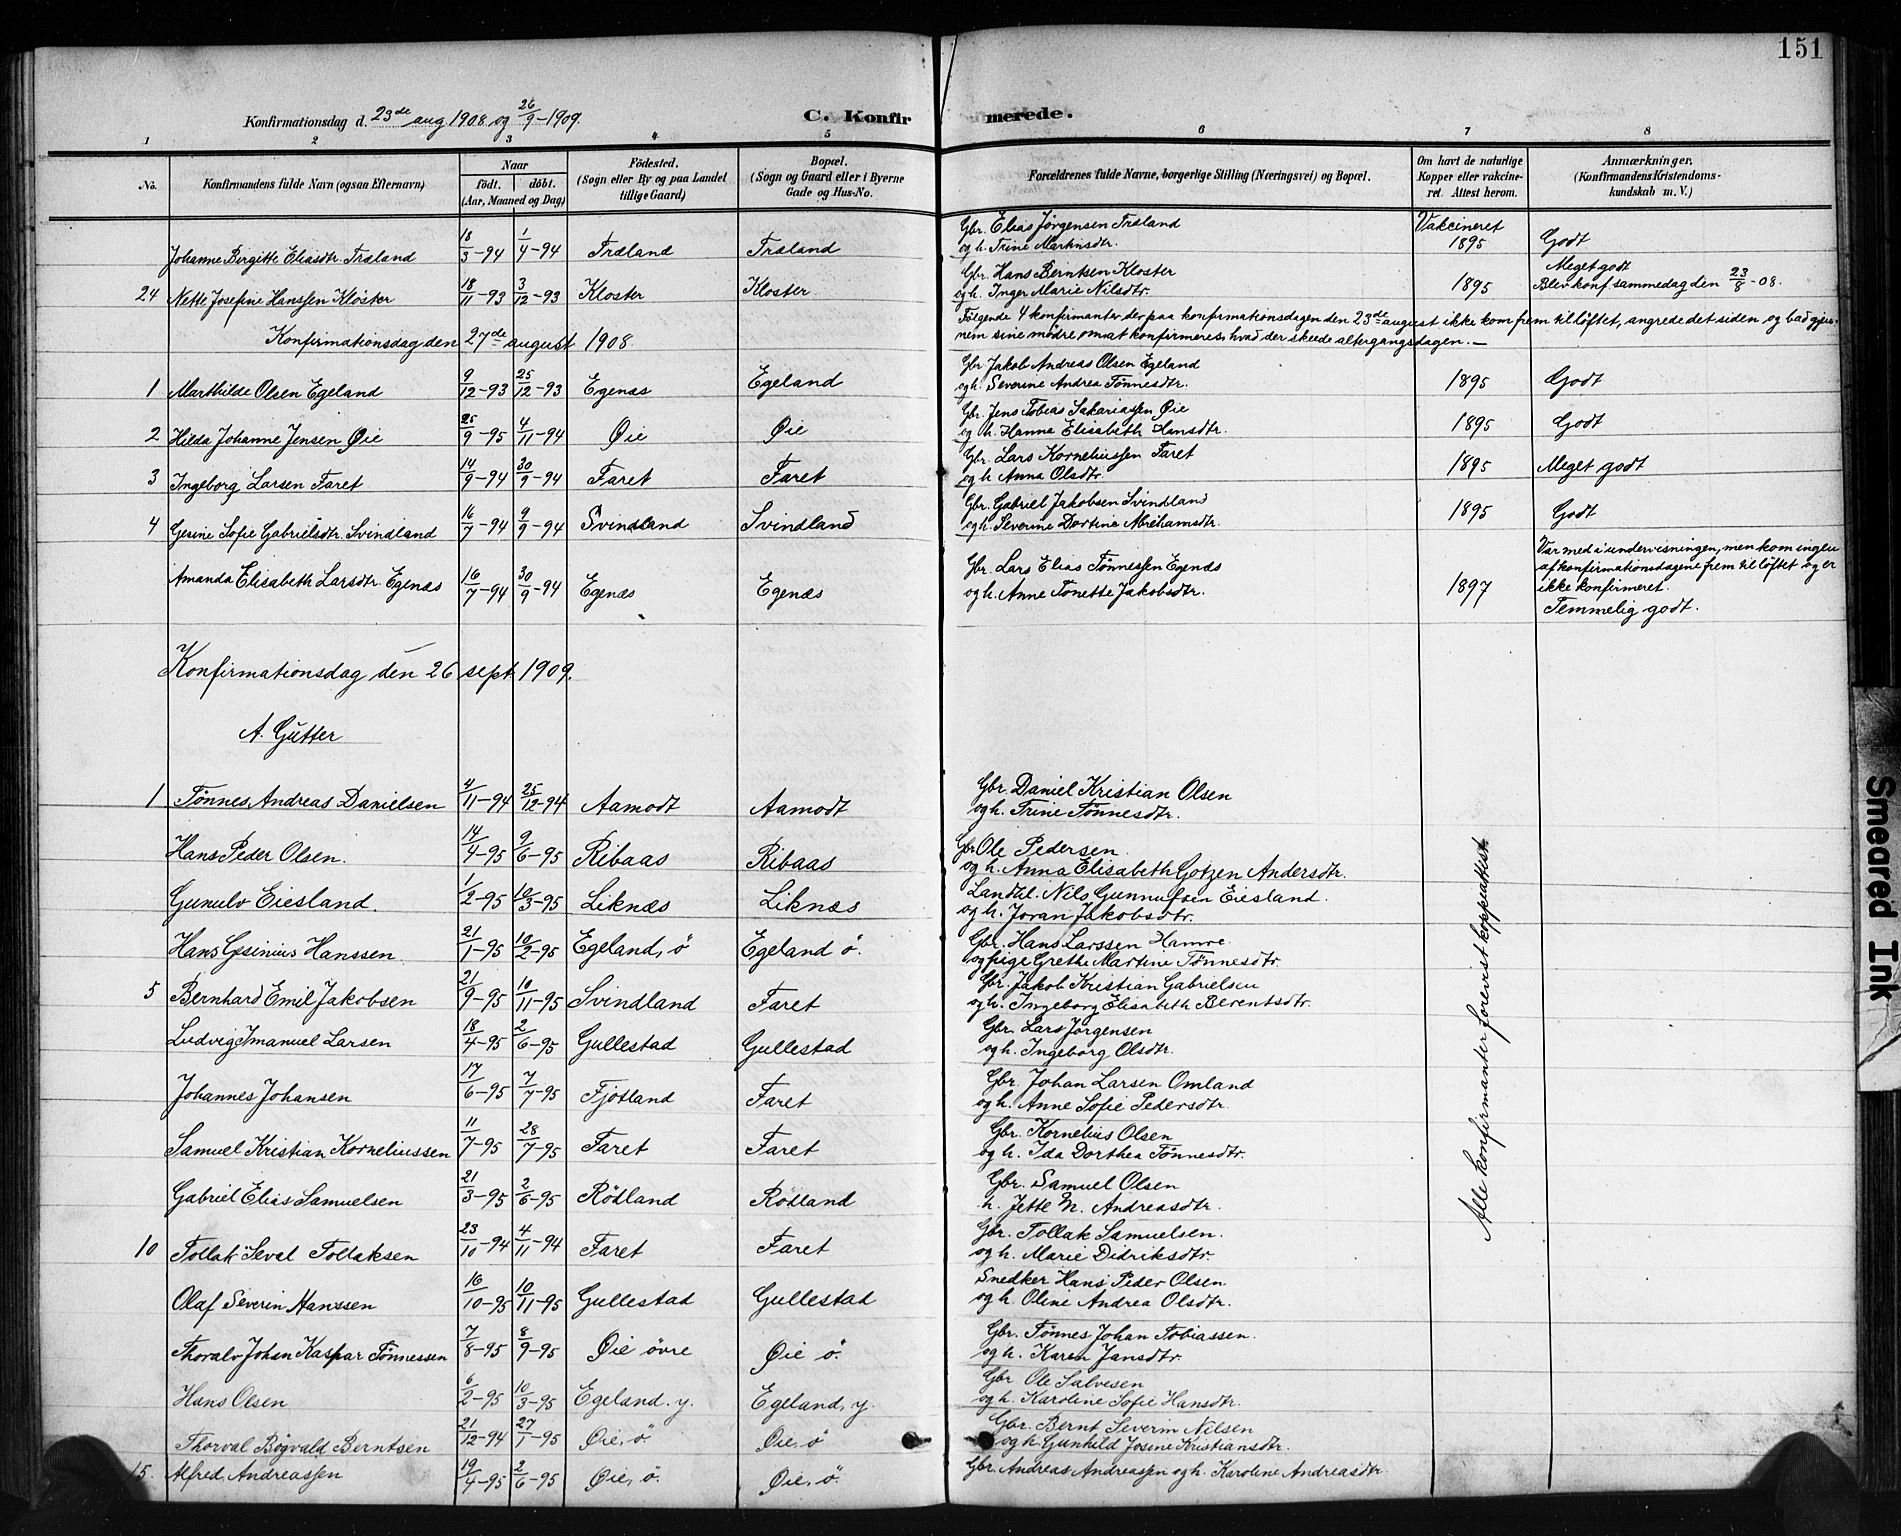 151
Konfirmationsdag d. 23de aug 1908 og 26/9-1909.
C. Konfirmerede.
1 2 3 4 5 6 7 8
No.
Konfirmandens fulde Navn (ogsaa Efternavn)
Naar
födt. döbt.
(Aar, Maaned og Dag)
Födested.
(Sogn eller By og paa Landet
tillige Gaard)
Bopæl.
(Sogn og Gaard eller i Byerne
Gade og Hus-No.
Forældrenes fulde Navne, borgerlige Stilling (Næringsvei) og Bopæl.
Om havt de naturlige
Kopper eller vakcine-
ret. Attest herom.
Anmærkninger,
(Konfirmandens Kristendoms-
kundskab m. V.)
Johanne Birgitte Eliasdtr. Træland 18/3-94 1/4-94 Træland Træland Gbr. Elias Jørgensen Træland
og h. Trine Martinsdtr. Vakcineret
1895 Godt
24 Nette Josefine Hanssen Kloster 18/11-93 3/12-93 Kloster Kloster Gbr. Hans Berntsen Kloster
og h. Inger Marie Nilsdtr. 1895 Meget godt
Blev konf sammedag den 23/8-08.
Konfirmationsdag den 27de august 1908
Følgende 4 konfirmanter der paa konfirmationsdagen den 23de august ikke kom frem til løftet, angrede det siden og bad gjen-
nem sine mødre om at konfirmeres, hvad der skeede altergangsdagen.—
1 Marthilde Olsen Egeland 9/12-93 25/12-93 Egenæs Egeland Gbr Jakob Andreas Olsen Egeland
og h. Severine Andrea Tønnesdtr. 1895 Godt
2 Hilda Johanne Jensen Øie 25/9-95 4/11-94 Øie Øie Gbr. Jens Tobias Sakariassen Øie
og h. Hanna Elisabeth Hansdtr. 1895 Godt
3 Ingeborg Larsen Faret 14/9-94 30/9-94 Faret Faret Gbr. Lars Korneliussen Faret
og h. Anna Olsdtr. 1895 Meget godt
4 Gesine Sofie Gabrielsdtr. Svindland 16/7-94 9/9-94 Svindland Svindland Gbr. Gabriel Jakobsen Svindland
og h. Severine Dortine Abrahamsdtr. 1895 Godt
Amanda Elisabeth Larsdtr. Egenæs 16/7-94 30/9-94 Egenæs Egenæs Gbr. Lars Elias Tønnessen Egenæs
og h. Anne Tonette Jakobsdtr. 1897 Var med i undervisningen, men kom ingen
af konfirmationsdagene frem til løftet og er
ikke konfirmeret.
Temmelig godt.
Konfirmationsdag den 26 sept. 1909.
A. Gutter
1 Tønnes Andreas Danielsen 4/11-94 25/12-94 Aamodt Aamodt Gbr. Daniel Kristian Olsen
og h. Trine Tønnesdtr.
Hans Peder Olsen. 14/4-95 9/6-95 Ribaas Ribaas Gbr Ole Pedersen
og h. Anna Elisabeth Gotzen Andersdtr.
Gunulv Eiesland. 1/2-95 10/3-95 Liknæs Liknæs Landhl. Nils Gunnufsen Eiesland.
og h. Joran Jakobsdtr.
Hans Gesinius Hanssen 21/1-95 10/2-95 Egeland, ö Egeland ö. Gbr. Hans Larssen Hamre.
og pige Grethe Martine Tønnesdtr.
5 Bernhard Emil Jakobsen 21/9-95 10/11-95 Svindland Faret Gbr. Jakob Kristian Gabrielsen
og h. Ingeborg Elisabeth Berentsdtr.
Ludvig Imanuel Larsen 18/4-95 2/6-95 Gullestad Gullestad Gbr. Lars Jørgensen
og h. Ingeborg Olsdtr.
Johannes Johansen 17/6-95 7/7-95 Fjotland Faret Gbr. Johan Larsen Omland
og h. Anne Sofie Pedersdtr.
Samuel Kristian Korneliussen 11/7-95 28/7-95 Faret Faret Gbr. Kornelius Olsen
og h. Ida Dorthea Tønnesdtr.
Gabriel Elias Samuelsen 21/3-95 2/6-95 Rödland Rödland Gbr. Samuel Olsen
h. Jette M. Andreasdtr.
10 Tollak Seval Tollaksen 23/10-94 4/11-94 Faret Faret Gbr. Tollak Samuelsen.
og h. Marie Didriksdtr.
Olaf Severin Hanssen 16/10-95 10/11-95 Gullestad Gullestad Snedker Hans Peder Olsen
og h. Oline Andrea Olsdtr.
Thoralv Johan Kaspar Tönnessen 7/8-95 8/9-95 Øie övre Øie ö. Gbr. Tønnes Johan Tobiassen.
og h. Karen Jansdtr.
Hans Olsen 6/2-95 10/3-95 Egeland. y. Egeland, y. Gbr Ole Salvesen
og h. Karoline Sofie Hansdtr.
Thorval Bögvald Berntsen 21/12-94 27/1-95 Øie, ö. Øie, ö Gbr. Bernt Severin Nilsen
og h. Gunhild Josine Kristiansdtr.
15. Alfred Andreassen 19/4-95 2/6-95 Øie, ö. Øie, ö. Gbr. Andreas Andreassen og h. Karoline Andreasdtr.
Alle konfirmander foreviste koppeattest
Smeared Ink